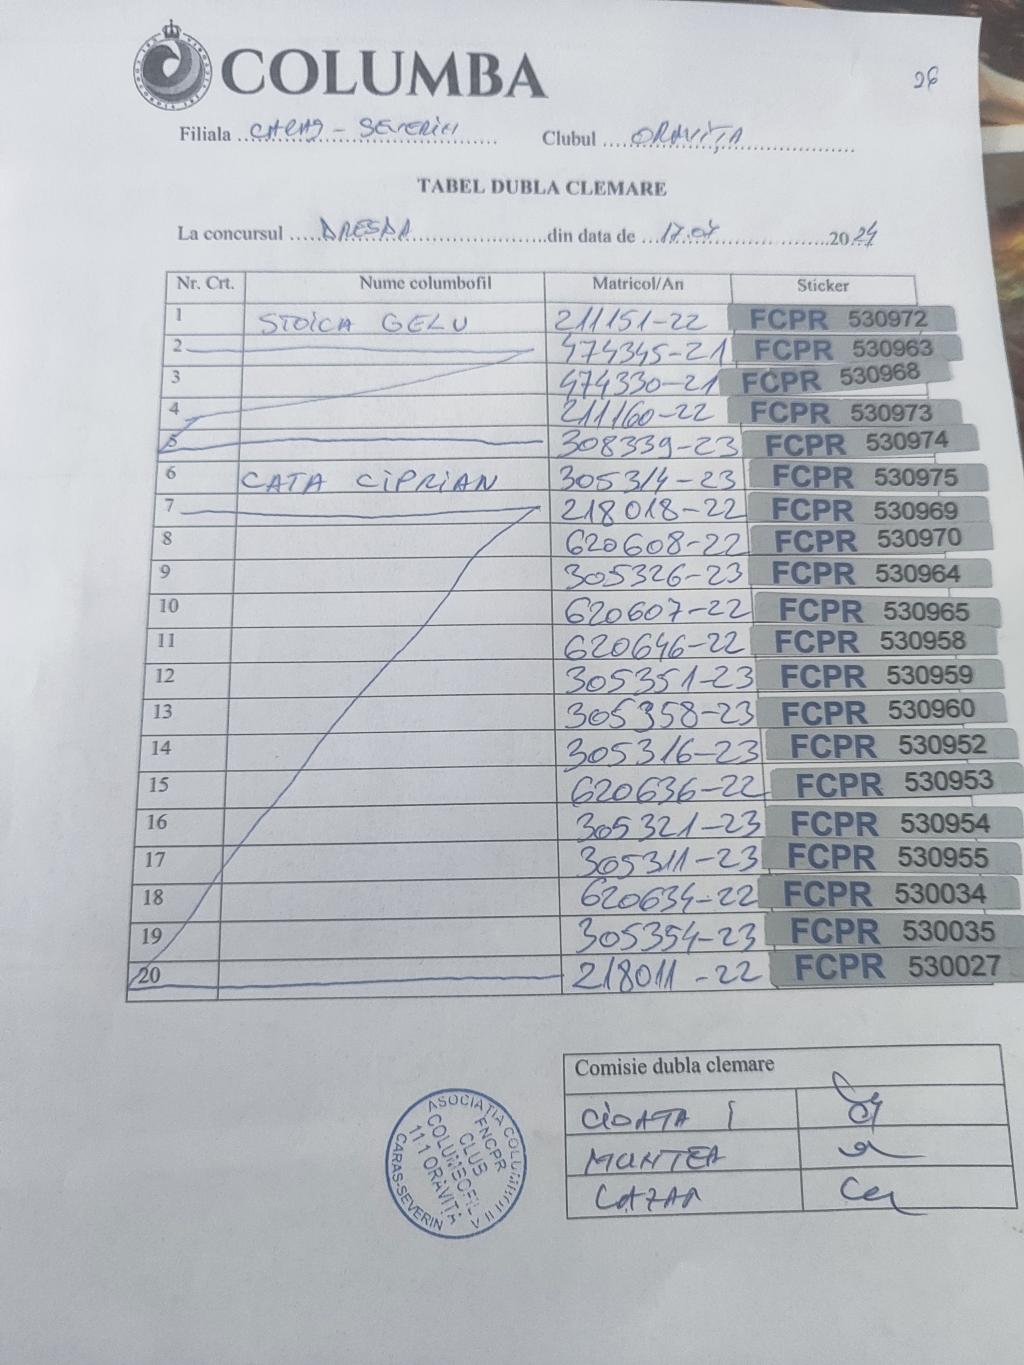 COLUMBA
26
Filiala ..CARAȘ - SEVERIN.......... Clubul ....ORAVIȚA..................
TABEL DUBLA CLEMARE
La concursul .....DRESDA.......................din data de ...17.07.......... ........2024
Nr. Crt. Nume columbofil Matricol/An Sticker
1 STOICA GELU 211151-22 FCPR 530972
2 474345-21 FCPR 530963
3 474330-21 FCPR 530968
4 211160-22 FCPR 530973
5 308339-23 FCPR 530974
6 CATA CIPRIAN 305314-23 FCPR 530975
7 218018-22 FCPR 530969
8 620608-22 FCPR 530970
9 305326-23 FCPR 530964
10 620607-22 FCPR 530965
11 620646-22 FCPR 530958
12 305351-23 FCPR 530959
13 305358-23 FCPR 530960
14 305316-23 FCPR 530952
15 620636-22 FCPR 530953
16 305321-23 FCPR 530954
17 305311-23 FCPR 530955
18 620634-22 FCPR 530034
19 305354-23 FCPR 530035
20 218011-22 FCPR 530027
Comisie dubla clemare
CIOATA I
MUNTEA
COZAR
ASOCIAȚIA COLUMBOFILĂ
FNCPR
CLUB
COLUMBOFIL
111 ORAVIȚA
CARAS-SEVERIN